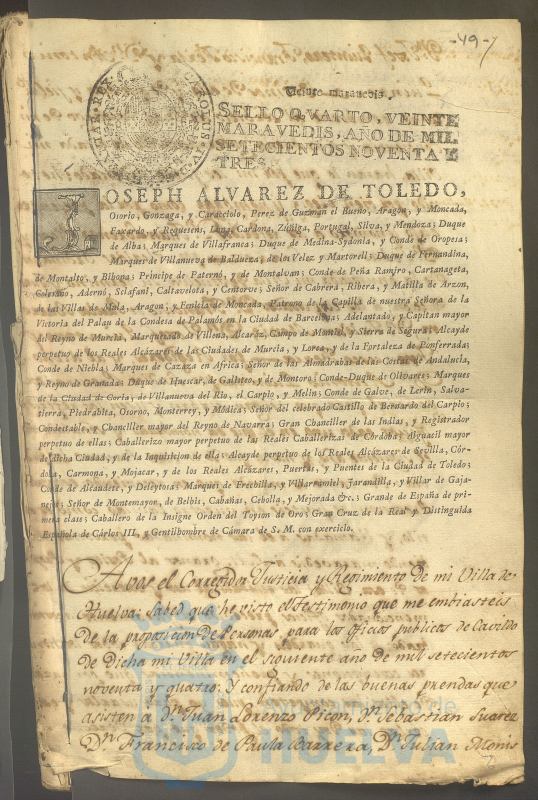 -49-
CAROLUS
HISPANIAR. REX
Veinte maravedis.
SELLO QVARTO, VEINTE
MARAVEDIS, AÑO DE MIL
SETECIENTOS NOVENTA Y
TRES.
JOSEPH ALVAREZ DE TOLEDO,
Osorio, Gonzaga, y Caracciolo, Perez de Guzman el Bueno, Aragon, y Moncada,
Faxardo, y Requesens, Luna, Cardona, Zúñiga, Portugal, Silva, y Mendoza; Duque
de Alba; Marques de Villafranca; Duque de Medina-Sydonia, y Conde de Oropesa;
Marques de Villanueva de Baldueza, de los Velez y Martorell; Duque de Fernandina,
de Montalto, y Bibona; Príncipe de Paternó, y de Montalvan; Conde de Peña Ramiro, Cartanageta,
Golesano, Adernó, Sclafani, Caltavelota, y Centorve; Señor de Cabrera, Ribera, y Matilla de Arzon,
de las Villas de Mula, Aragon, y Fenicia de Moncada, Patrono de la Capilla de nuestra Señora de la
Victoria del Palau de la Condesa de Palamós en la Ciudad de Barcelona; Adelantado, y Capitan mayor
del Reyno de Murcia, Marquesado de Villena, Alcaráz, Campo de Montiel, y Sierra de Segura; Alcayde
perpetuo de los Reales Alcázares de las Ciudades de Murcia, y Lorca, y de la Fortaleza de Ponferrada;
Conde de Niebla; Marques de Cazaza en Africa; Señor de las Almadrabas de las Costas de Andalucía,
y Reyno de Granada; Duque de Huescar, de Galisteo, y de Montoro; Conde-Duque de Olivares; Marques
de la Ciudad de Coria; de Villanueva del Rio, el Carpio, y Melin; Conde de Galve, de Lerin, Salva-
tierra, Piedrahita, Osorno, Monterrey, y Módica; Señor del celebrado Castillo de Bernardo del Carpio;
Condestable, y Chanciller mayor del Reyno de Navarra; Gran Chanciller de las Indias, y Registrador
perpetuo de ellas; Caballerizo mayor perpetuo de las Reales Caballerizas de Córdoba; Alguacil mayor
de dicha Ciudad, y de la Inquisicion de ella; Alcayde perpetuo de los Reales Alcázares de Sevilla, Cór-
doba, Carmona, y Mojacar, y de los Reales Alcázares, Puertas, y Puentes de la Ciudad de Toledo;
Conde de Alcaudete, y Deleytosa; Marques de Frechilla, y Villarramiel, Jarandilla, y Villar de Gaja-
nejos; Señor de Montemayor, de Belbis, Cabañas, Cebolla, y Mejorada &c.; Grande de España de pri-
mera clase; Caballero de la Insigne Orden del Toyson de Oro; Gran Cruz de la Real y Distinguida
Española de Cárlos III, y Gentilhombre de Cámara de S. M. con exercicio.
Avos el Corregidor Justicia y Regimiento de mi Villa de
Huelva: Sabed que he visto el testimonio que me embiasteis
de la proposicion de Personas para los oficios publicos de Cavildo
de dicha mi Villa en el siguiente año de mil setecientos
noventa y quatro: Y confiando de las buenas prendas que
asisten a Dn. Juan Lorenzo Picon, Dn. Sebastian Suarez
Dn. Francisco de Paula Barrera, Dn. Julian Monis
Ayuntamiento de
HUELVA